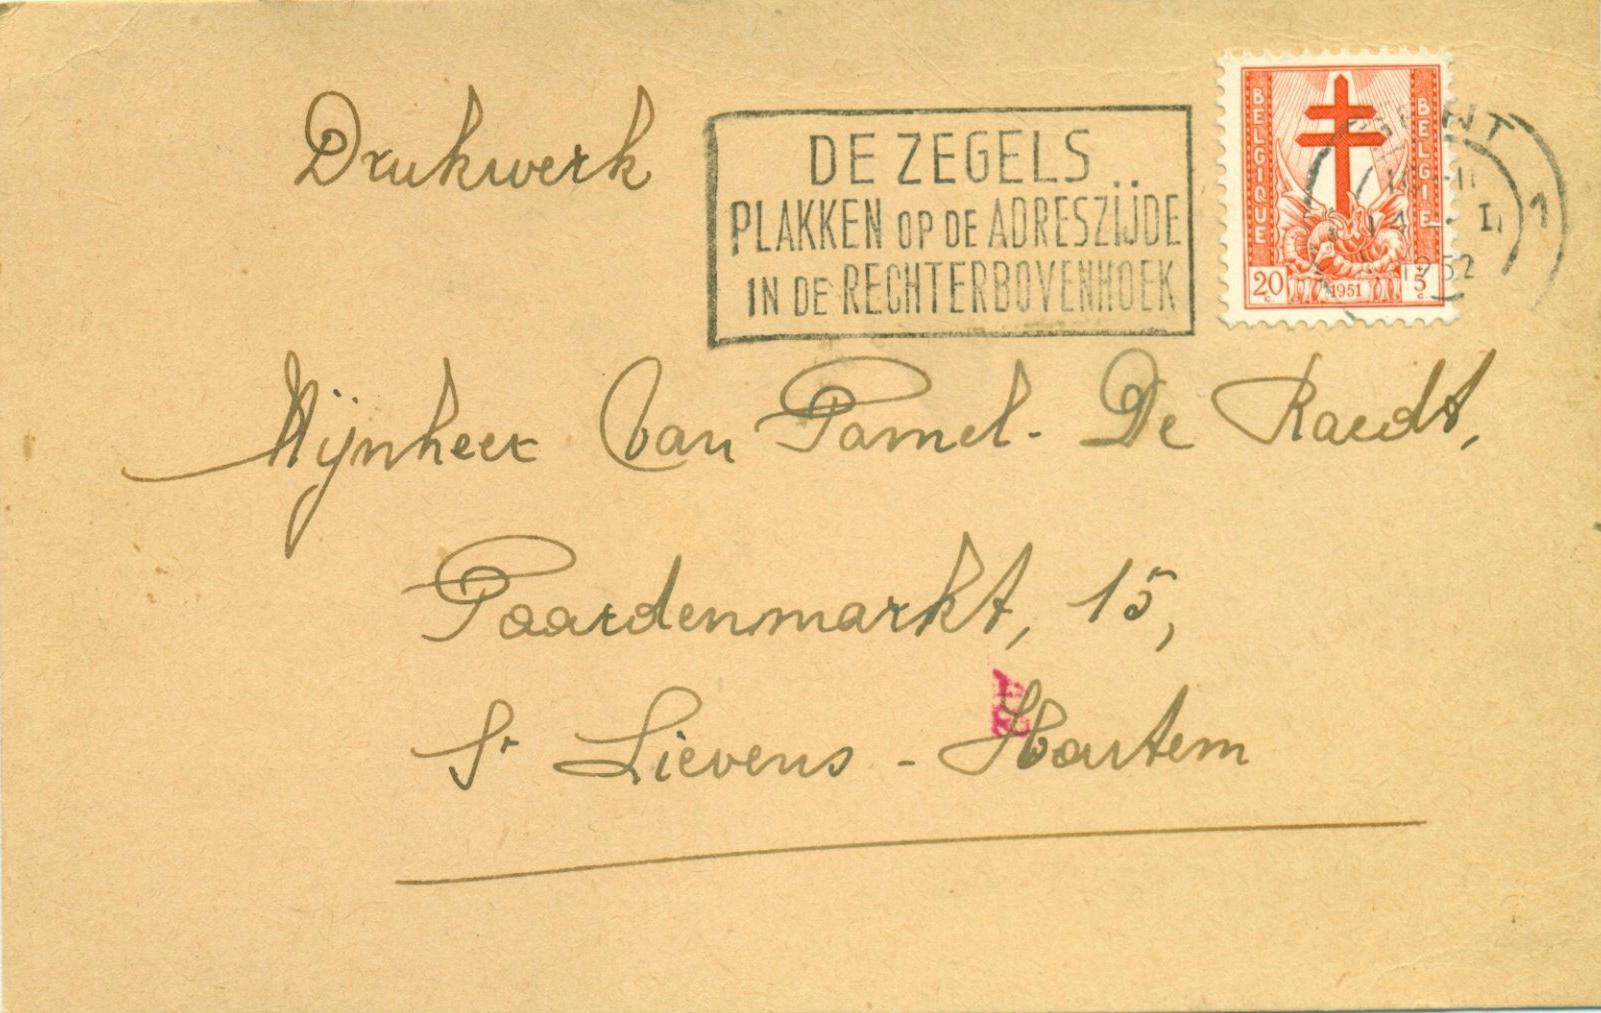 Drukwerk
DE ZEGELS
PLAKKEN OP DE ADRESZIJDE
IN DE RECHTERBOVENHOEK
BELGIQUE
BELGIE
20 c.
1951
5 c.
1
1952
Mijnheer Van Pamel - De Raedt,
Paardenmarkt, 15,
St Lievens - Houtem